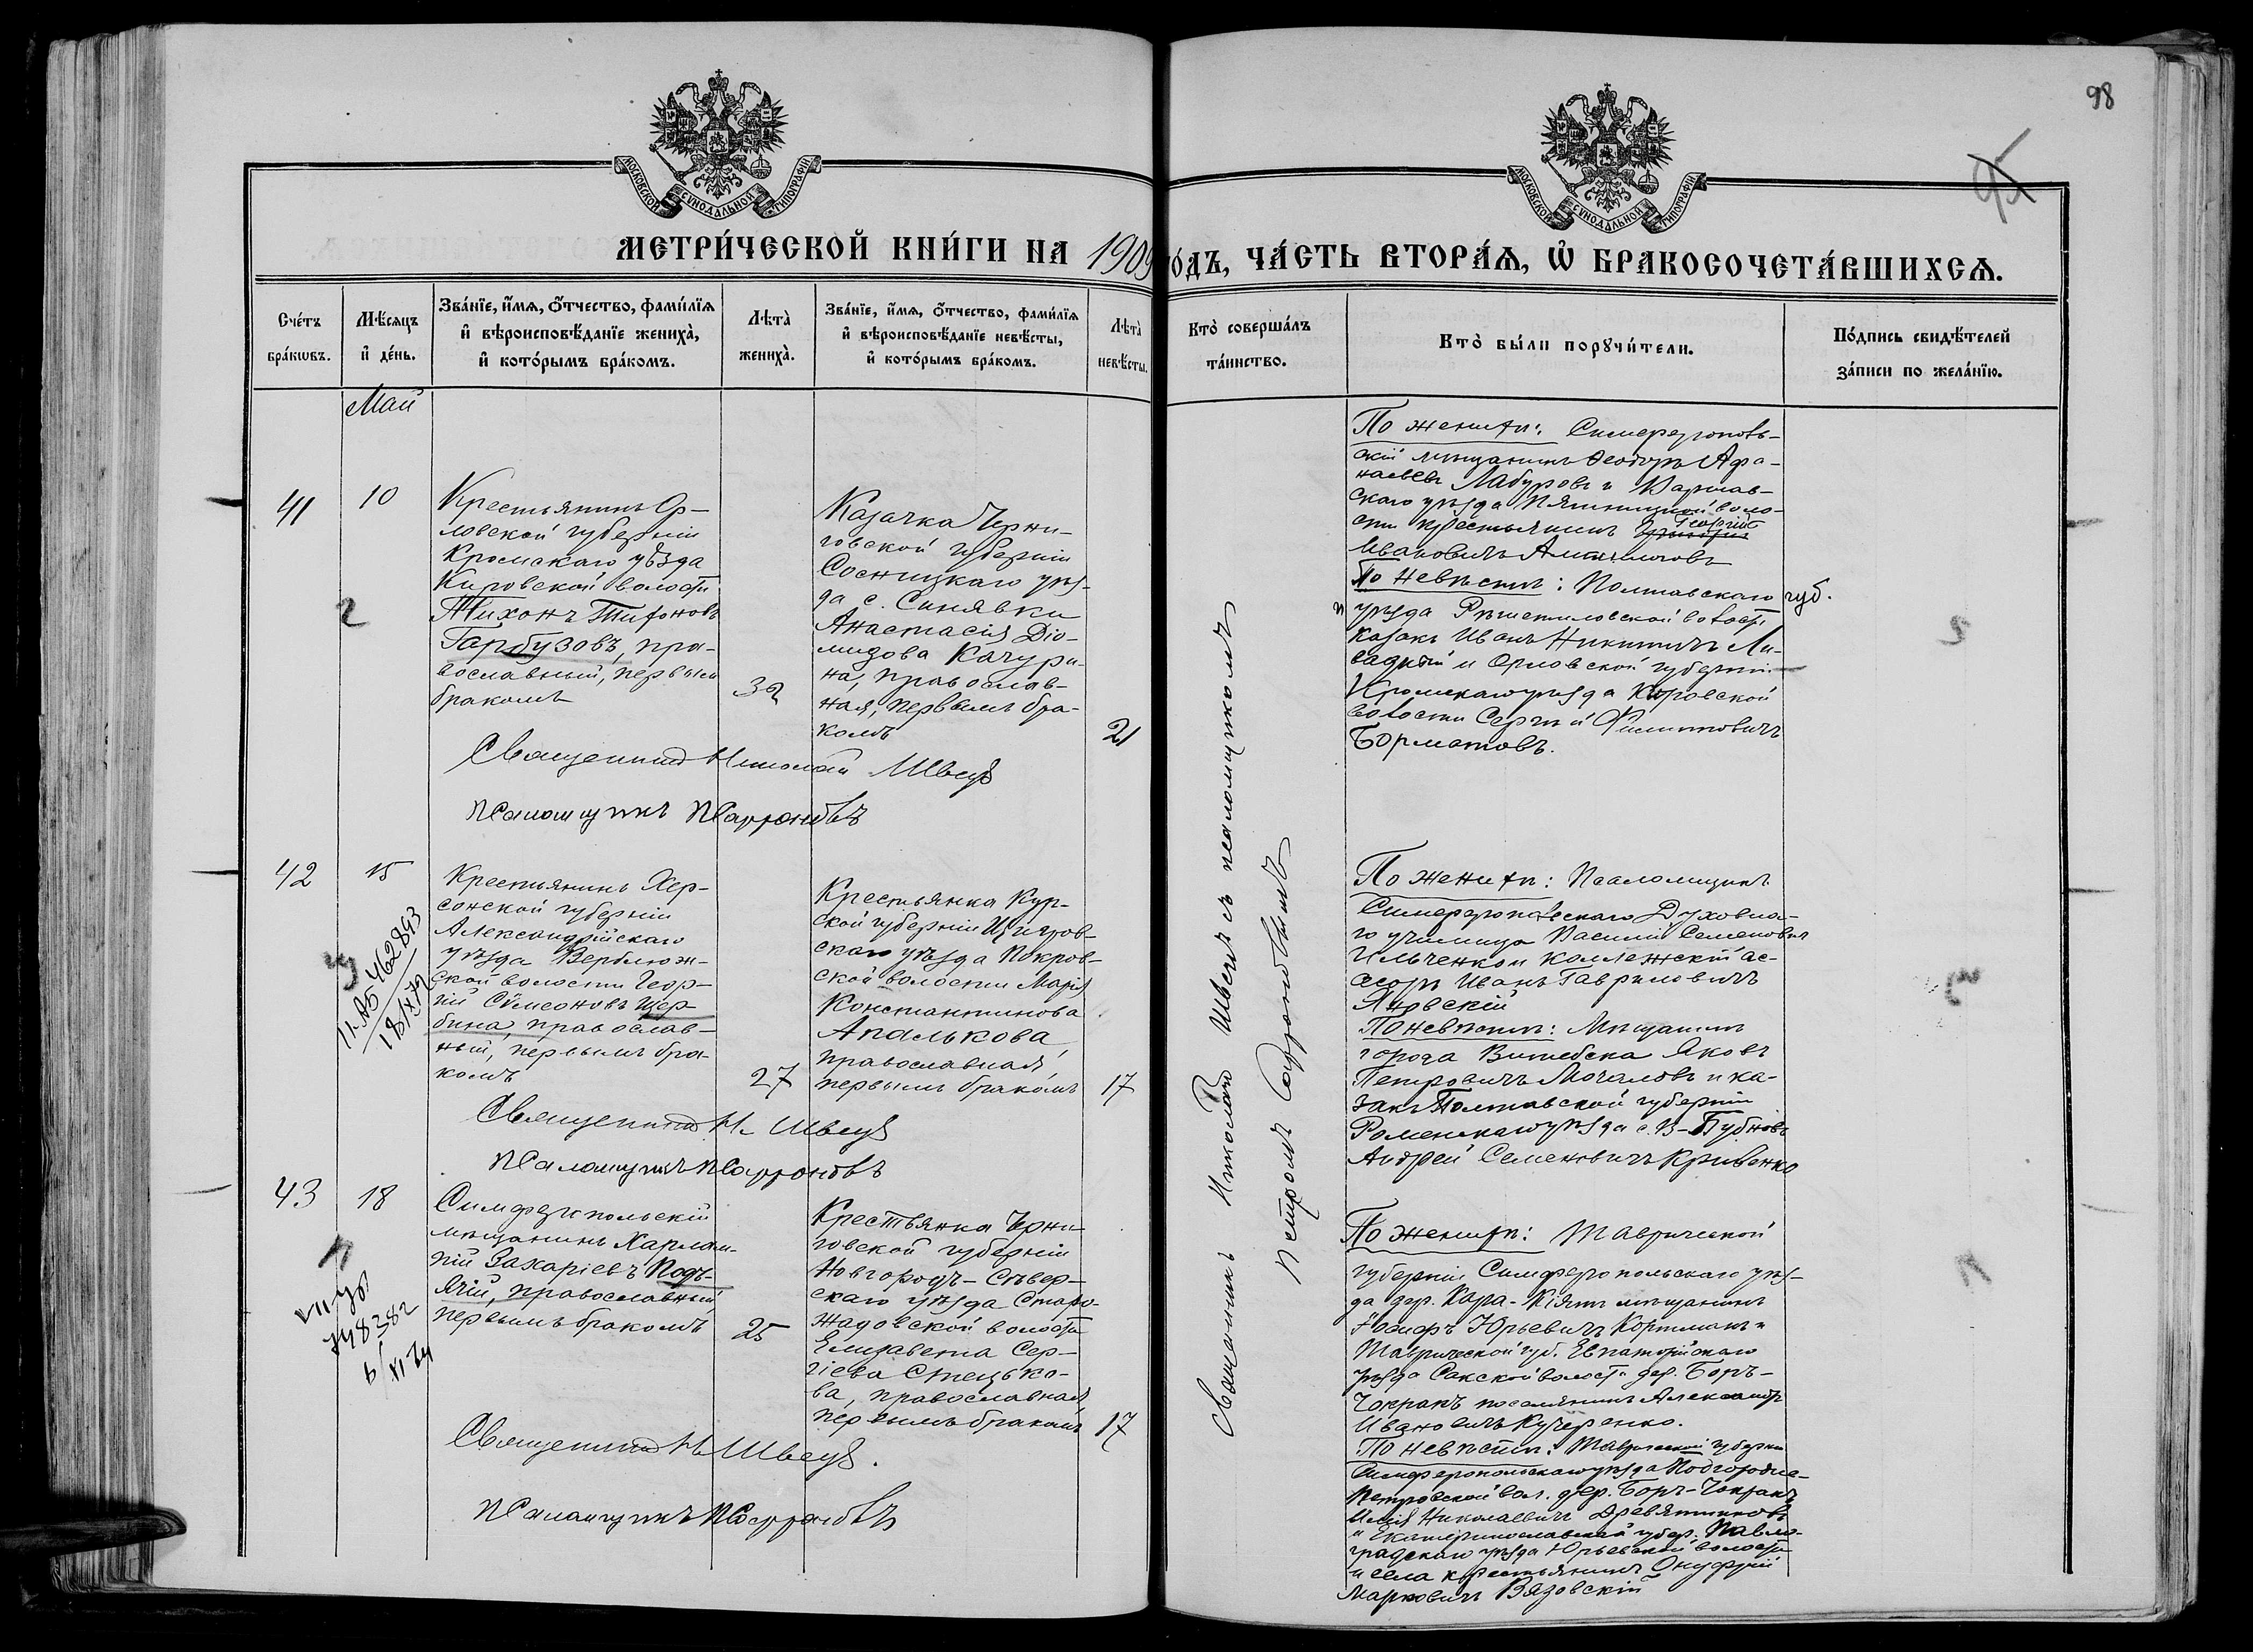 98
95
МОСКОВСКОЙ СѴНОДАЛЬНОЙ ТИПОГРАФІИ
МОСКОВСКОЙ СѴНОДАЛЬНОЙ ТИПОГРАФІИ
МЕТРИ́ЧЕСКОЙ КНИ́ГИ НА 1909 ГО́ДЪ, ЧА́СТЬ ВТОРА́Ѧ, Ѽ БРАКОСОЧЕТА́ВШИХСѦ.
Сче́тъ бра́кѡвъ.
Мѣ́сяцъ и҆ де́нь.
Зва́нїе, и҆́мѧ, ѻ҆́тчество, фами́лїѧ и҆ вѣроисповѣ́данїе жениха̀, и҆ кото́рымъ бра́комъ.
Лѣта̀ жениха̀.
Зва́нїе, и҆́мѧ, ѻ҆́тчество, фами́лїѧ и҆ вѣроисповѣ́данїе невѣ́сты, и҆ кото́рымъ бра́комъ.
Лѣта̀ невѣ́сты.
Кто̀ соверша́лъ та́инство.
Кто̀ бы́ли порꙋчи́тели.
По́дпись свидѣ́телей за́писи по жела́нїю.
Май
41
10
Крестьянинъ Ор-
ловской губерніи
Кромскаго уѣзда
Кировской волости
Тихонъ Тихоновъ
Гарбузовъ, пра-
вославный, первымъ
бракомъ
32
Казачка Черни-
говской губерніи
Сосницкаго уѣз-
да с. Синявки
Анастасія Діо-
мидова Качури-
на, православ-
ная, первымъ бра-
комъ
21
Священникъ Николай Швецъ
Псаломщикъ П Сафроновъ
По женихѣ: Симферополь-
скій мѣщанинъ Ѳеодоръ Афа-
насьевъ Лабуровъ и Варнав-
скаго уѣзда Пятницкой воло-
сти крестьянинъ Георгій
Ивановичъ
По невѣстѣ: Полтавскаго губ.
уѣзда Рѣшетиловской волости
казакъ Иванъ Никитичъ Ли-
вадный и Орловской губерніи
Кромскаго уѣзда Кировской
волости Сергѣй Филипповичъ
Борматовъ.
42
15
Крестьянинъ Хер-
сонской губерніи
Александрійскаго
уѣзда Верблюж-
ской волости Геор-
гій Сѵмеоновъ Щер-
бина, православ-
ный, первымъ бра-
комъ
27
Крестьянка Кур-
ской губерніи Щигров-
скаго уѣзда Покров-
ской волости Марія
Константинова
Апалькова,
православная
первымъ бракомъ
17
II-АБ 462893
Священникъ Н. Швецъ
Псаломщикъ П Сафроновъ
По женихѣ: Псаломщикъ
Симферопольскаго Духовна-
го училища Василій Семеновичъ
Ильченко и коллежскій ас-
сесоръ Иванъ Гавриловичъ
Яновскій
По невѣстѣ: Мѣщанинъ
города Витебска Яковъ
Петровичъ Мочаловъ и ка-
закъ Полтавской губерніи
Роменскаго уѣзда с. В-Бубновъ
Андрей Семеновичъ Кривенко
43
18
Симферопольскій
мѣщанинъ Харлам-
пій Захаріевъ Подъ-
ячій, православный
первымъ бракомъ
25
Крестьянка Черни-
говской губерніи
Новгородъ-Сѣвер-
скаго уѣзда Старо-
жадовской волости
Елизавета Сер-
гіева Стецько-
ва, православная,
первымъ бракомъ
17
748382
Священникъ Н. Швецъ.
Псаломщикъ П Сафроновъ
По женихѣ: Таврической
губерніи Симферопольскаго уѣз-
да дер. Кара-Кіятъ мѣщанинъ
Іосифъ Юрьевичъ Кортманъ и
Таврической губ. Евпаторійскаго
уѣзда Сакской волости дер. Боръ-
Чокракъ поселянинъ Александръ
Ивановичъ Кучеренко.
По невѣстѣ: Таврической губерніи
Симферопольскаго уѣзда Подгородне-
Петровской вол. дер. Боръ-Чокракъ
Николаевичъ Древятниковъ
и Екатеринославской губер. Павло-
градскаго уѣзда Юрьевской волости
и села крестьянинъ Онуфрій
Марковичъ Вязовскій
Священникъ Николай Швецъ съ псаломщикомъ
Петромъ Сафроновымъ